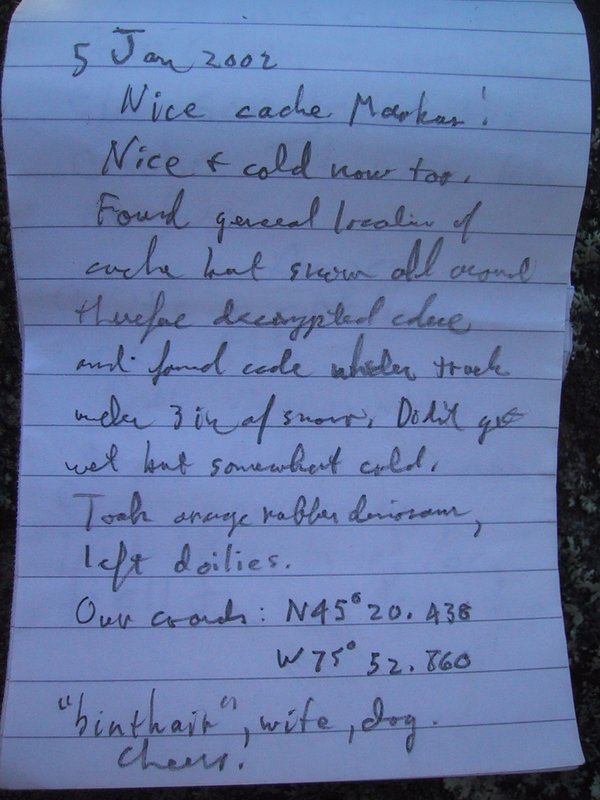 5 Jan 2002
Nice cache Markus!
Nice & cold now too.
Found general location of
cache but snow all around
therefore decrypted clue
and found cache under trunk
under 3 in of snow. Didn't get
wet but somewhat cold.
Took orange rubber dinosaur,
left doilies.
Our coords: N45° 20. 438
W75° 52. 860
"binthair", wife, dog.
Cheers.